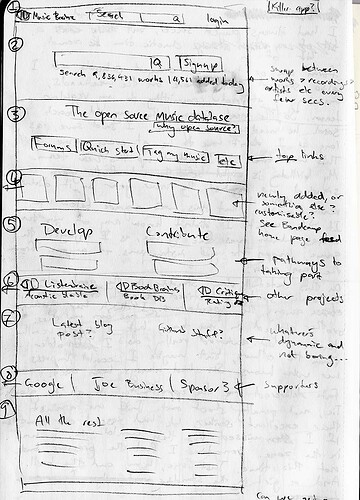 1
Music Brainz
Search
Q
login
[Killer app?]
2
Q
Signup
Search 9,836,431 works | 4,561 added today
swap between
works > recordings >
artists etc every
few secs.
3
The open source music database
why open source?
Forums
Quick start
Tag my music
etc
top links
4
newly added, or
something else?
customisable?
see Bandcamp
home page feed
5
Develop
Contribute
pathways to
taking part
6
Listenbrainz
BookBrainz
Critiq
Book DB
Rating
other projects
7
Latest blog
post?
Github stuff?
whatever's
dynamic and
not boring...
8
Google | Joe Business | Sponsor 3
supporters
9
All the rest